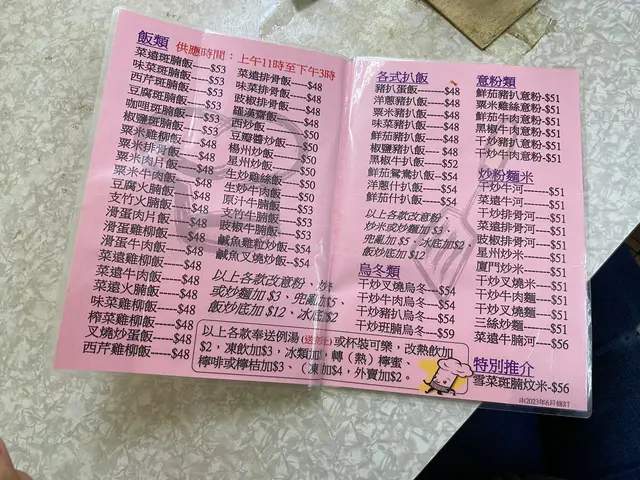 飯類 供應時間：上午11時至下午3時
菜遠斑腩飯-----$53
味菜斑腩飯-----$53
西芹斑腩飯-----$53
豆腐斑腩飯-----$53
咖哩斑腩飯-----$53
椒鹽斑腩飯-----$53
粟米雞柳飯-----$48
粟米排骨飯-----$48
粟米肉片飯-----$48
粟米牛肉飯-----$48
豆腐火腩飯-----$48
支竹火腩飯-----$48
滑蛋肉片飯-----$48
滑蛋雞柳飯-----$48
滑蛋牛肉飯-----$48
菜遠雞柳飯-----$48
菜遠牛肉飯-----$48
菜遠火腩飯-----$48
味菜雞柳飯-----$48
榨菜雞柳飯-----$48
叉燒炒蛋飯-----$48
西芹雞柳飯-----$48
菜遠排骨飯----$48
味菜排骨飯----$48
豉椒排骨飯----$48
羅漢齋飯------$48
西炒飯--------$50
豆瓣醬炒飯----$50
楊州炒飯------$50
星州炒飯------$50
生炒雞絲飯----$50
生炒牛肉飯----$50
原汁牛腩飯----$53
支竹牛腩飯----$53
豉椒牛腩飯----$53
鹹魚雞粒炒飯--$54
鹹魚叉燒炒飯--$54
以上各款改意粉、炒米
或炒麵加 $3、兜亂加$5、
飯炒底加 $12、冰底$2
以上各款奉送例湯(送完止)或杯裝可樂，改熱飲加
$2，凍飲加$3，冰類加，轉（熱）檸蜜、
檸啡或檸桔加$3、（凍加$4，外賣加$2。
各式扒飯
豬扒蛋飯------$48
洋蔥豬扒飯----$48
粟米豬扒飯----$48
味菜豬扒飯----$48
鮮茄豬扒飯----$48
椒鹽豬扒飯----$48
黑椒牛扒飯----$52
鮮茄鴛鴦扒飯--$54
洋蔥什扒飯----$54
鮮茄什扒飯----$54
以上各款改意粉、
炒米或炒麵加 $3、
兜亂加 $5、冰底加$2、
飯炒底加 $12
烏冬類
干炒叉燒烏冬--$54
干炒牛肉烏冬--$54
干炒豬扒烏冬--$54
干炒班腩烏冬--$59
意粉類
鮮茄豬扒意粉-$51
粟米雞絲意粉-$51
鮮茄牛肉意粉-$51
黑椒牛肉意粉-$51
干炒豬扒意粉-$51
干炒牛肉意粉-$51
炒粉麵米
干炒牛河----$51
菜遠牛河----$51
干炒排骨河--$51
菜遠排骨河--$51
豉椒排骨河--$51
星州炒米----$51
廈門炒米----$51
干炒叉燒米--$51
干炒牛肉麵--$51
干炒牛肉米--$51
三絲炒麵----$51
菜遠牛腩河--$56
特別推介
雪菜斑腩炆米-$56
由2023年6月修訂